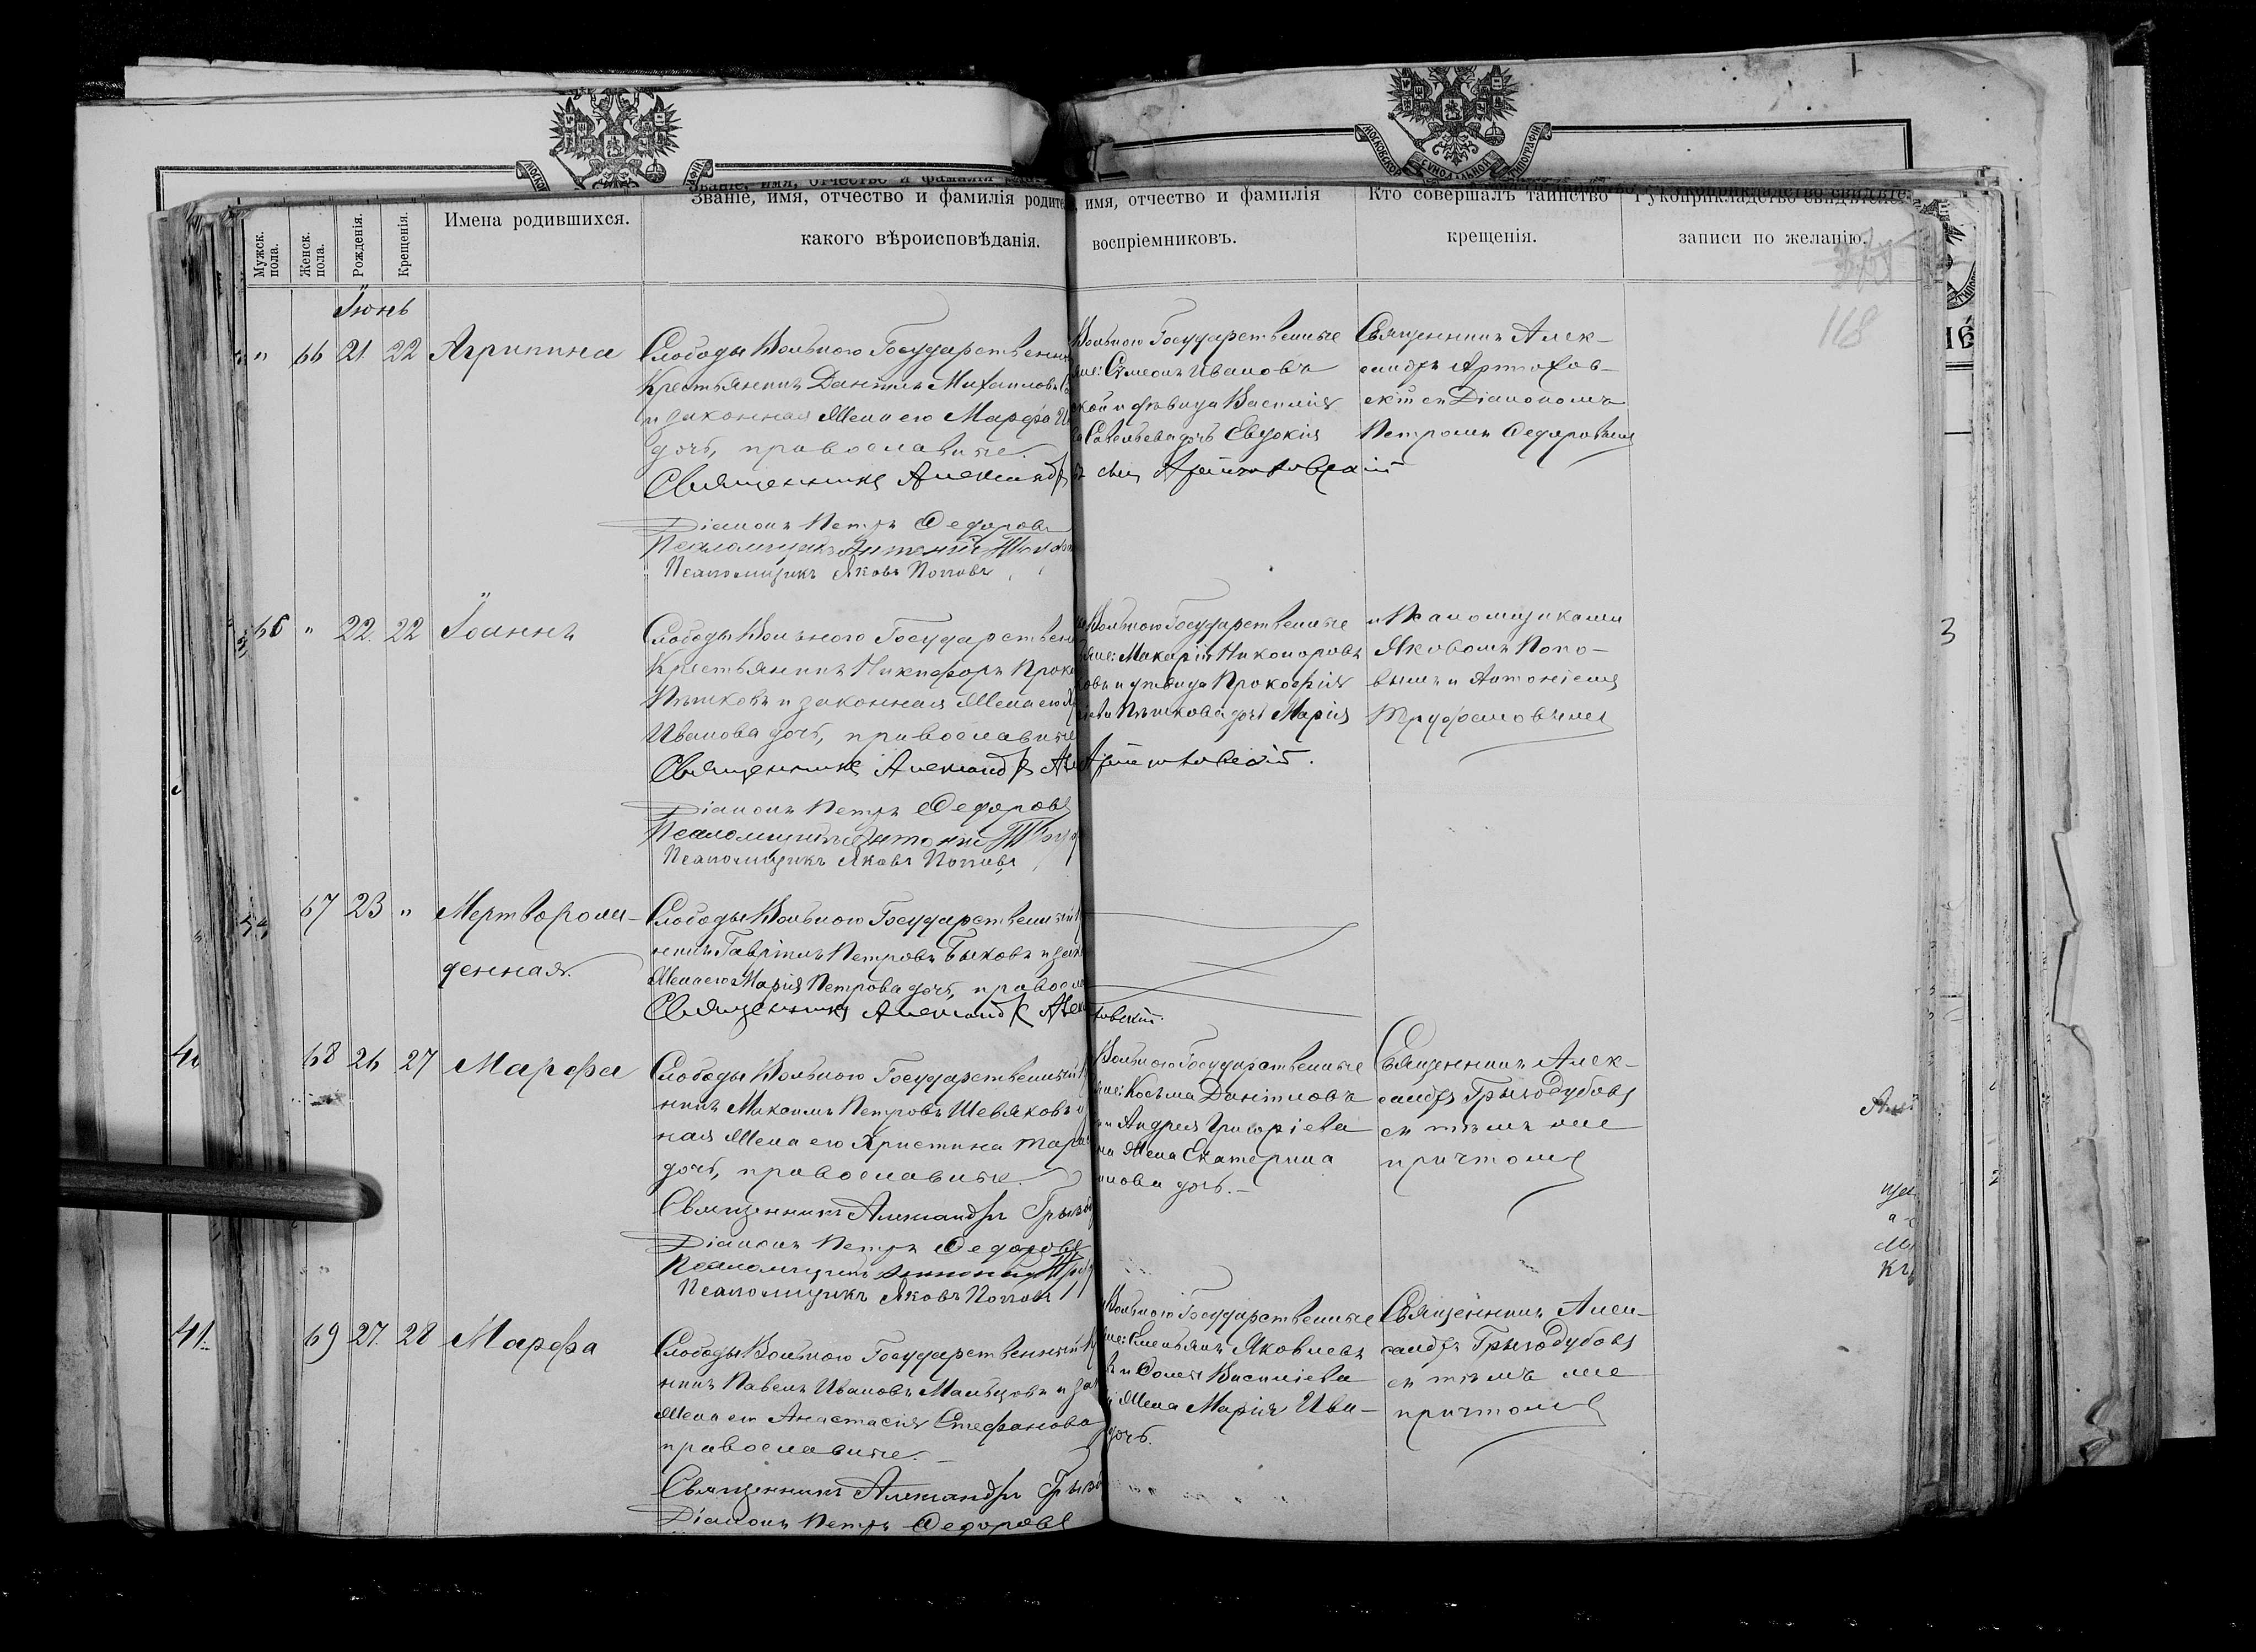 МОСКОВСКОЙ СѴНОДАЛЬНОЙ ТИПОГРАФІИ
Мужск. пола.
Женск. пола.
Рожденія.
Крещенія.
Имена родившихся.
Званіе, имя, отчество и фамилія родите
какого вѣроисповѣданія.
имя, отчество и фамилія
воспріемниковъ.
Кто совершалъ таинство
крещенія.
Рукоприкладство свидѣте
записи по желанію.
118
Іюнь
" 66 21 22 Агрипина
Слободы Вольного Государственн
Крестьянинъ Даніилъ Михаиловъ
и законная жена его Марфа
дочь, православные.
Священникъ Александр
Діаконъ Петръ Федоровъ
Псаломщикъ Антоній
Псаломщикъ Яковъ Поповъ
Вольного Государственные
Сѵмеонъ Ивановъ
кой и дѣвица Василія
Савельева дочь Евдокія
Священникъ Алек-
сандръ Артюхов-
скій съ Діакономъ
Петромъ Федоровымъ
66 " 22. 22 Іоаннъ
Слободы Вольного Государствен
Крестьянинъ Никифоръ Прок
Пѣшковъ и законная жена его
Иванова дочь, православные
Священникъ Александръ
Діаконъ Петръ Федоровъ
Псаломщикъ Антоній
Псаломщикъ Яковъ Поповъ
Вольного Государственные
Макарій Никоноровъ
ковъ и дѣвица Прокофія
Пѣшкова дочь Марія
и Псаломщиками
Яковомъ Попо-
вымъ и Антоніемъ
Труфановымъ
3
67 23 " Мертворож-
денная.
Слободы Вольного Государственный
нинъ Гавріилъ Петровъ Быковъ и зак
жена его Марія Петрова дочь, правосл
Священникъ Александръ
ковскій.
68 26 27 Марфа
Слободы Вольного Государственный
нинъ Максимъ Петровъ Шевяковъ и
ная жена его Христина Тара
дочь, православные.
Священникъ Александръ Грызо
Діаконъ Петръ Федоровъ
Псаломщикъ Антоній
Псаломщикъ Яковъ Поповъ
Вольного Государственные
Косьма Даніиловъ
Андрея Григоріева
жена Екатерина
нова дочь.
Священникъ Алек-
сандръ Грызодубовъ
съ тѣмъ же
причтомъ
41. 69 27. 28 Марфа
Слободы Вольного Государственный К
нинъ Павелъ Ивановъ Мальцовъ и зак
жена его Анастасія Стефанова
православные.
Священникъ Александръ Грызо
Діаконъ Петръ Федоровъ
Вольного Государственные
Емельянъ Яковлевъ
и Фомы Василіева
жена Марія Ива-
дочь.
Священникъ Алек-
сандръ Грызодубовъ
съ тѣмъ же
причтомъ